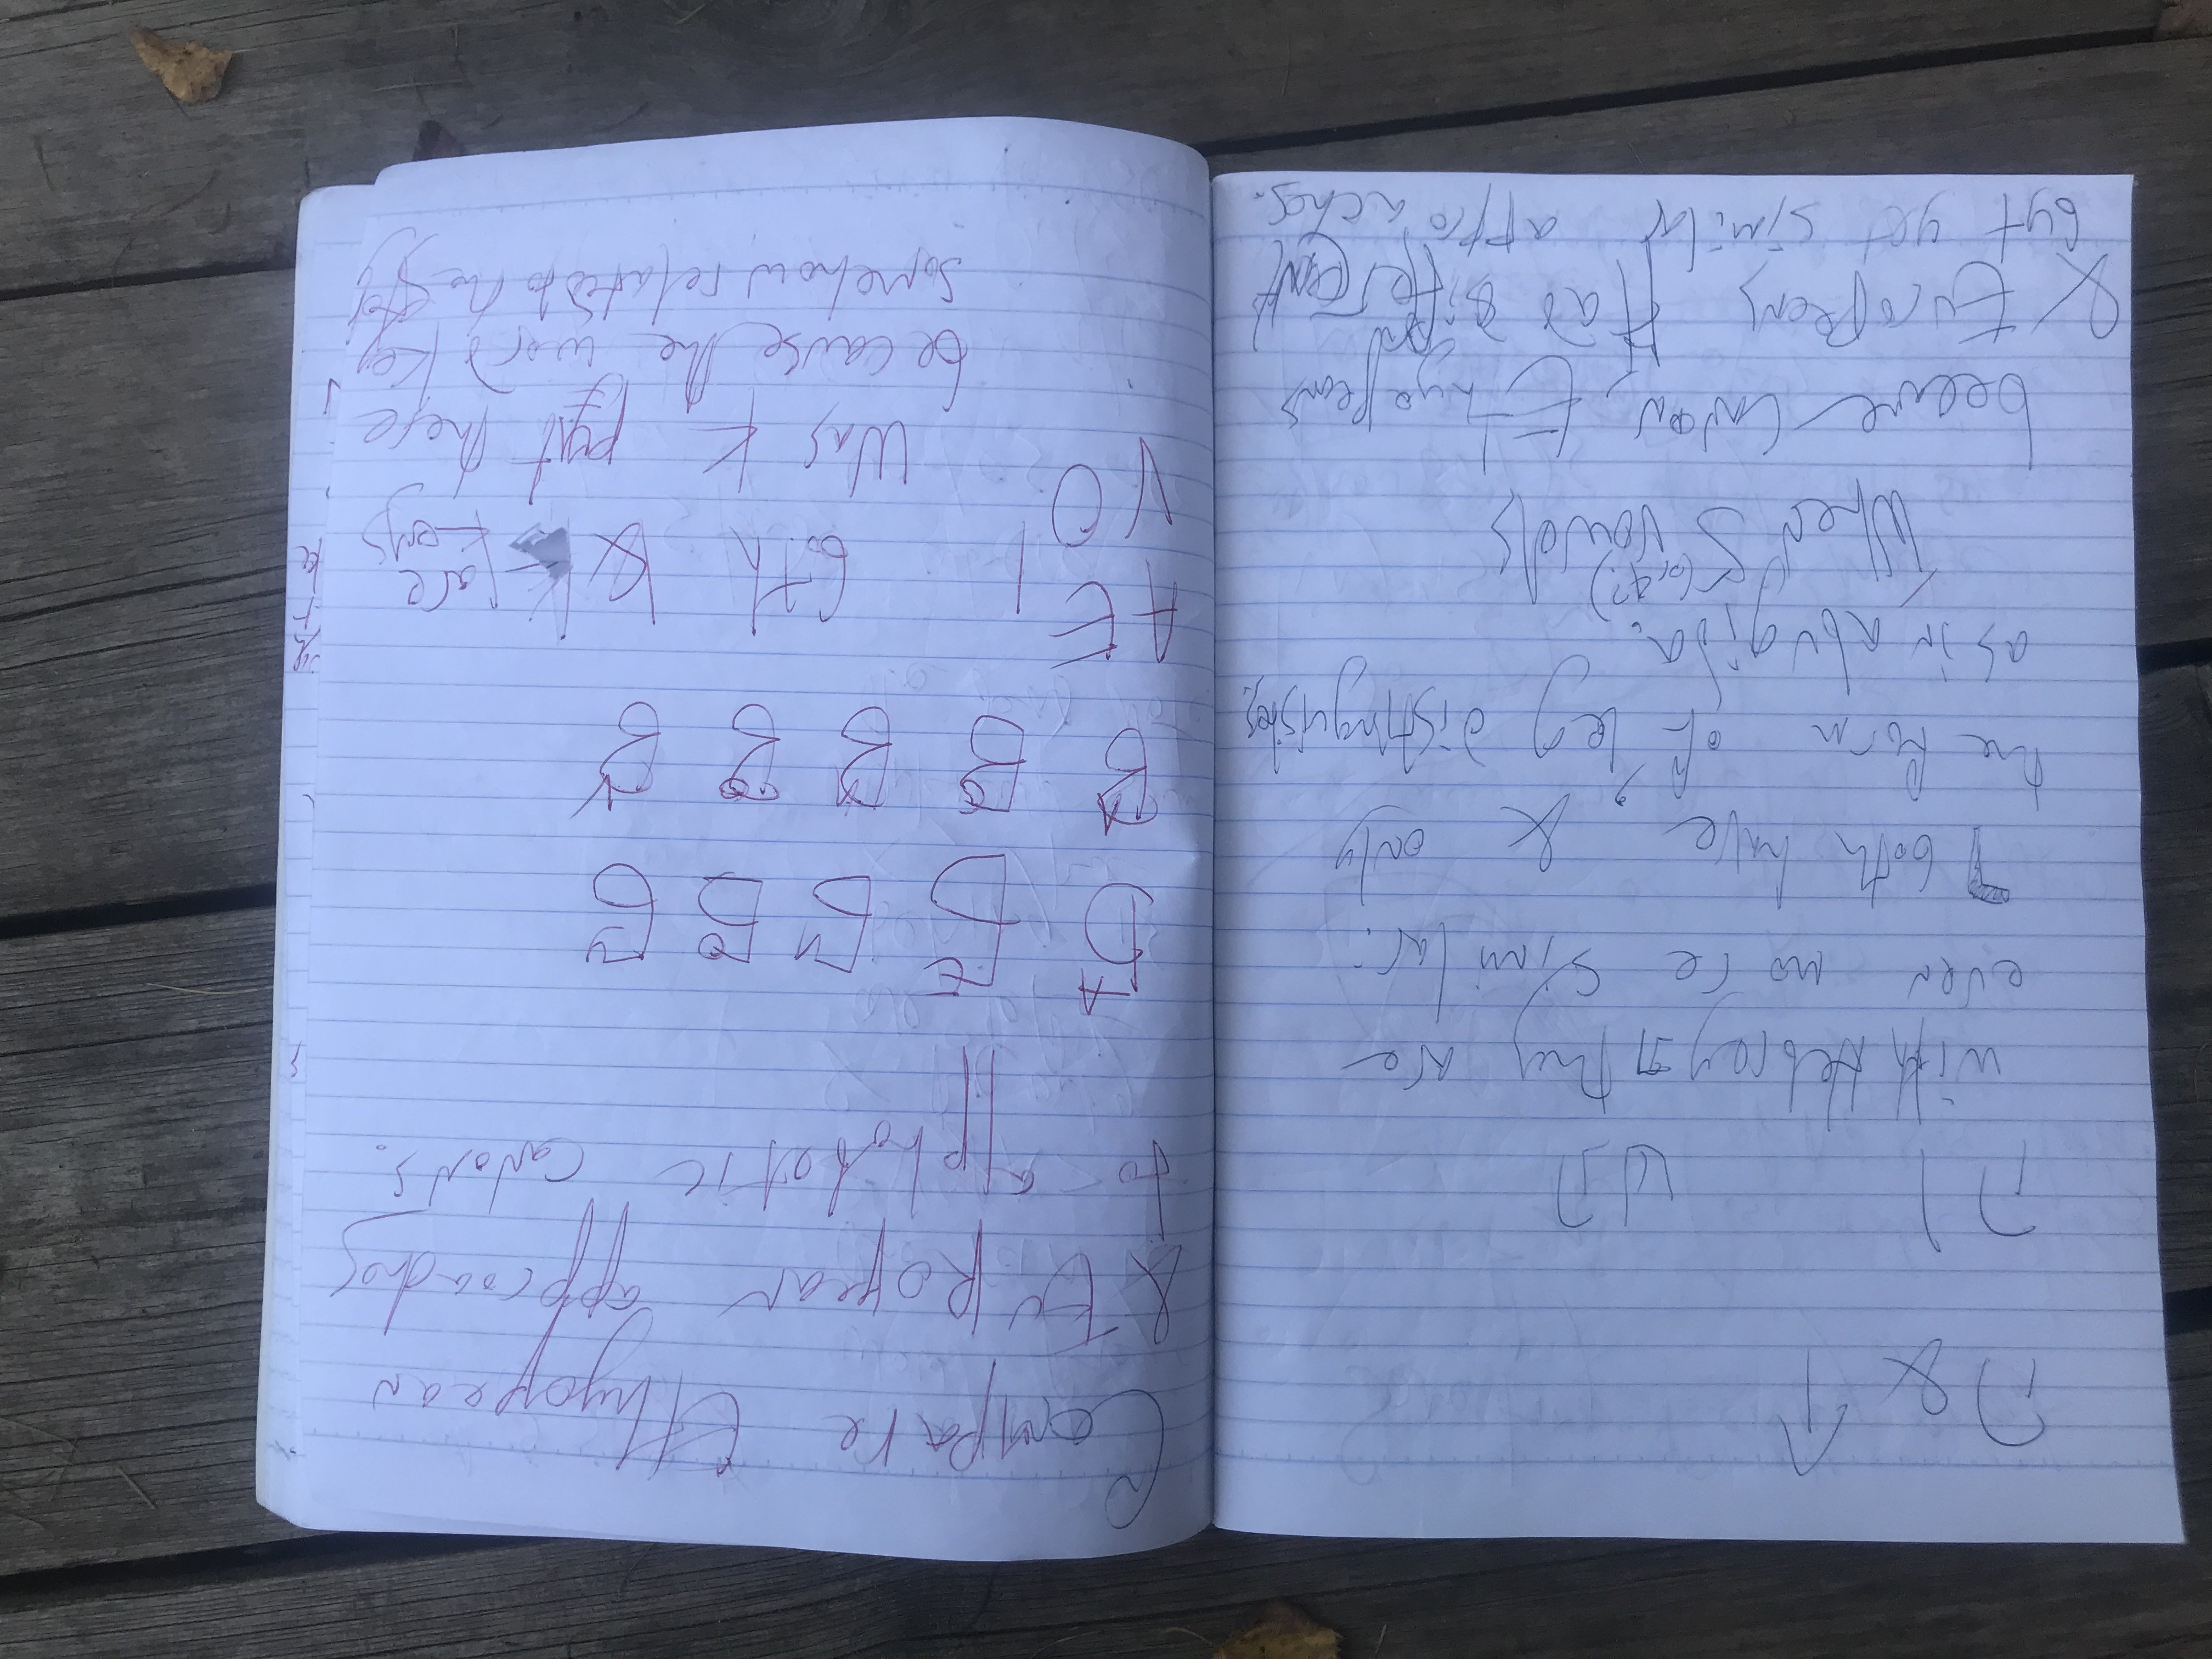 ה & ↑
ה ו ש ת
with Hebrey ה they are
even more similar:
ד both have, & only
the form of leg distinguishes.
as in abugida.
When 5 (or 4?) vowels
becme canon, Ethyopeans
& Europeans Had different
byt yet similar approaches.
Compare Ethyopean
& European approaches
to alphabetic canons.
A E O
Б Б Б Б Б
A
B B B B B
A E I
V O
both & K are keys
Was K pyt there
because the word key
somehow related to the